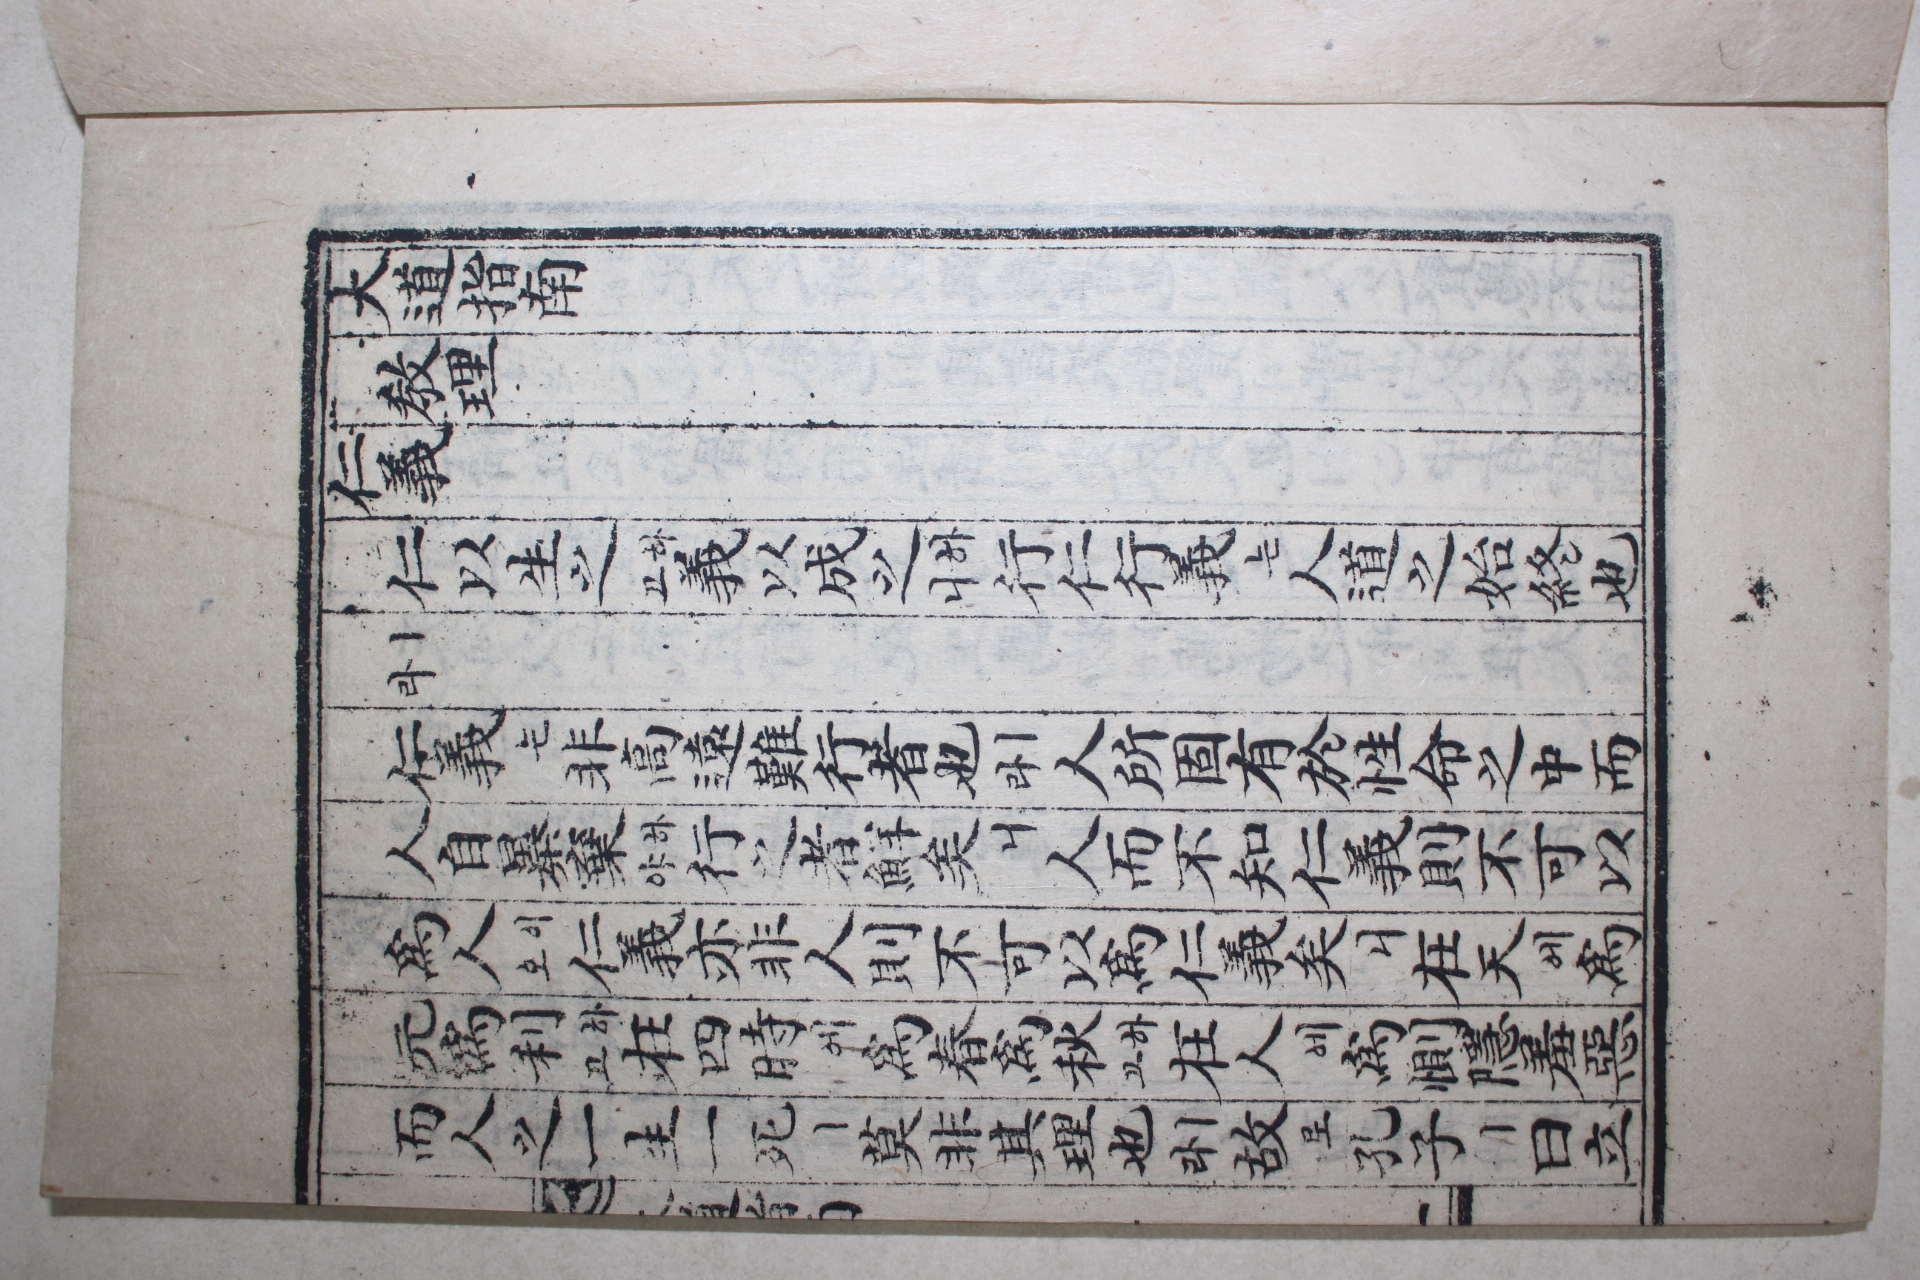 大道指南
教理
仁義
仁以生之하고義以成之하니行仁行義는人道之始終也
ㅣ라
仁義는非高遠難行者也ㅣ라人所固有於性命之中而
人自暴棄하야行之者鮮矣니人而不知仁義則不可以
爲人이오仁義亦非人則不可以爲仁義矣니在天에爲
元爲利하고在四時에爲春爲秋하고在人에爲惻隱羞惡
而人之一生一死ㅣ莫非其理也ㅣ라故로孔子ㅣ曰立